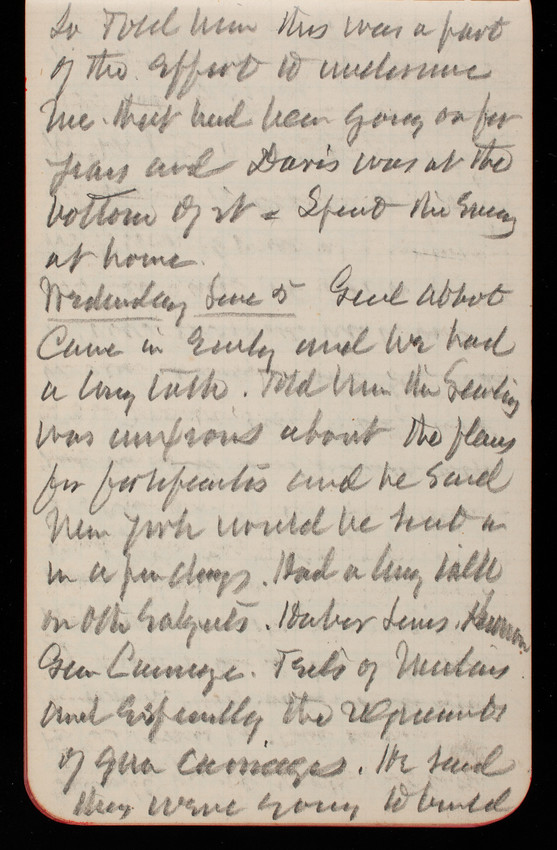 So Told him this was a part
of the effort to undermine
me. that had been going on for
years and Davis was at the
bottom of it - Spent the Eveng
at home.
Wednesday June 5 Genl Abbot
Came in Early and we had
a long talk. Told him the Secty
was anxious about the plans
for fortificatis and he said
New York would be sent in
in a few days. Had a long talk
on other subjects. Harbor lines.
Gun Carriage. Tests of Mortars
and Especially the requirements
of gun carriages. He said
they were going to build